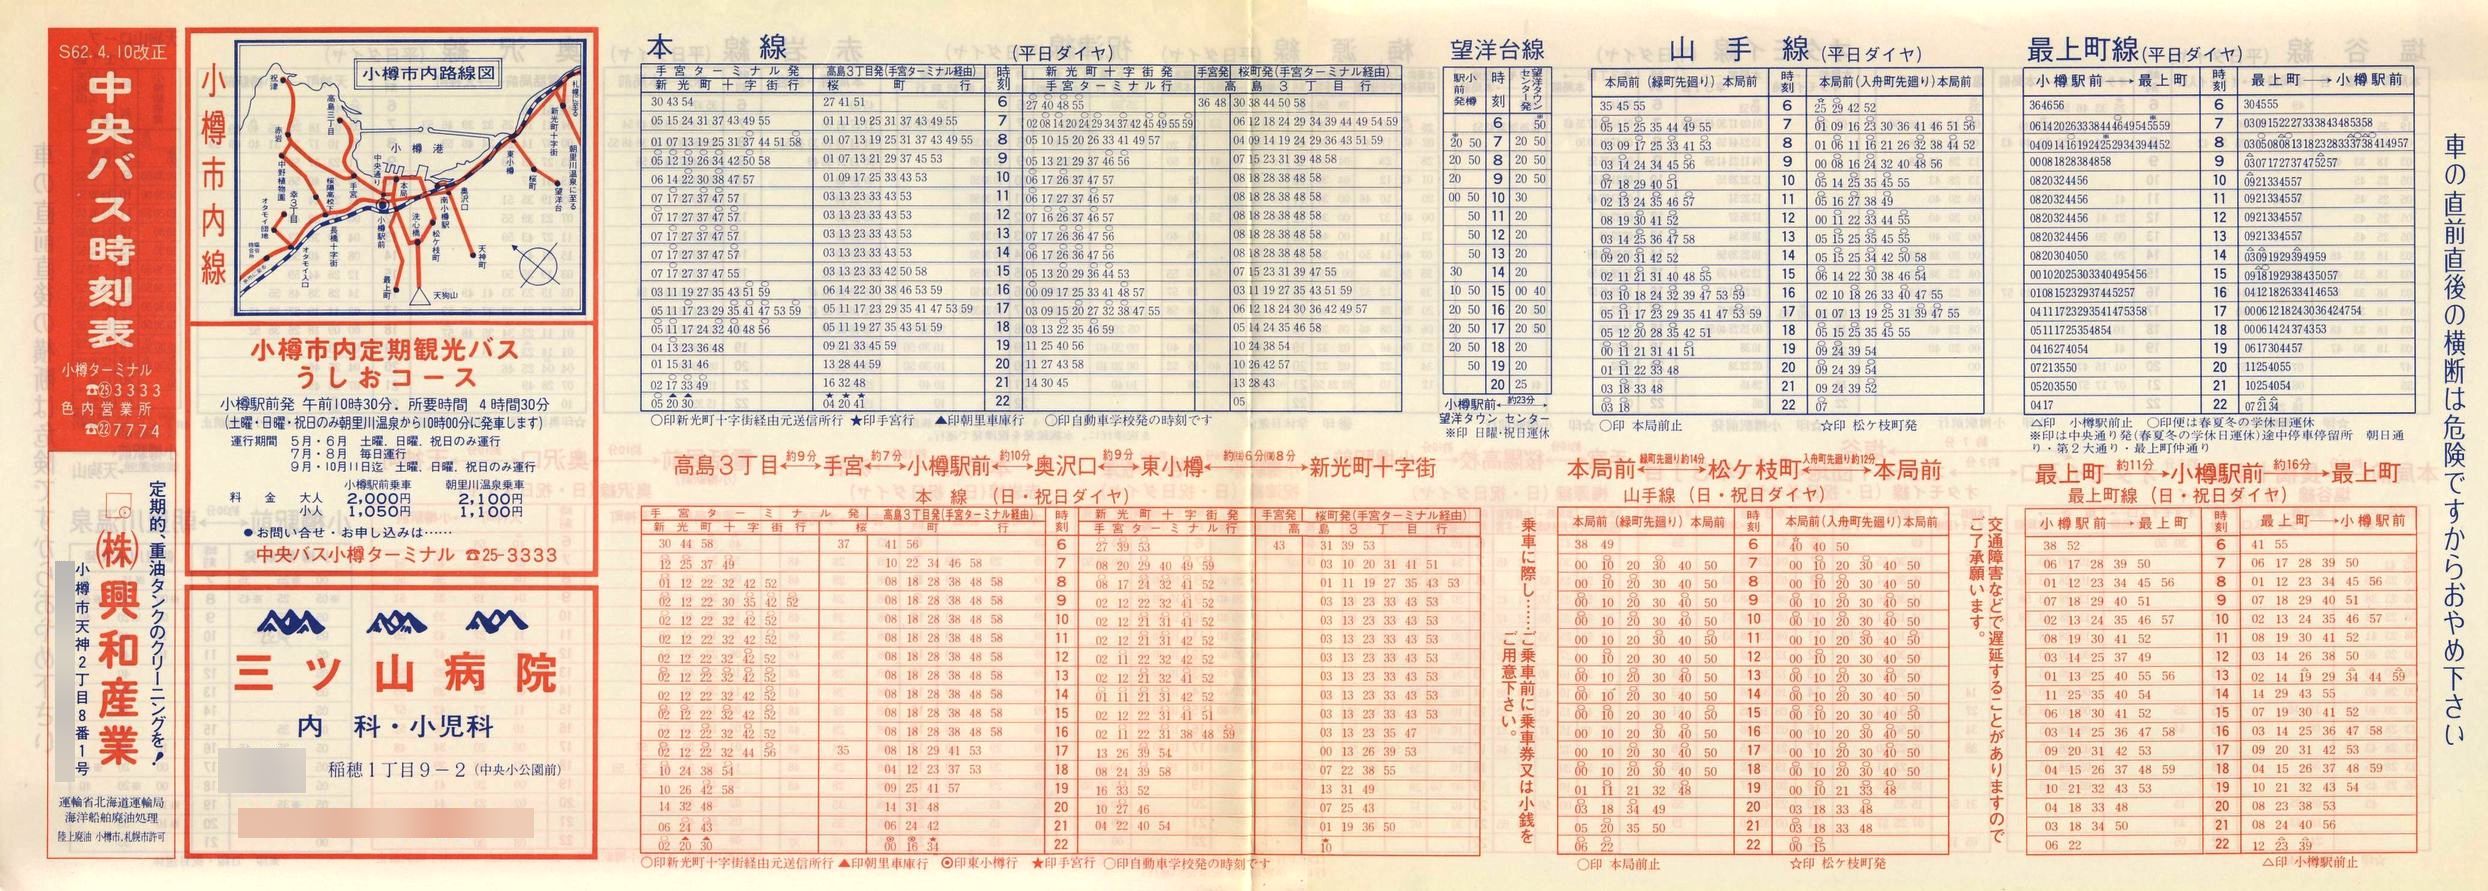 S62.4.10改正
中央バス時刻表
小樽ターミナル
☎㉕3333
色内営業所
☎㉒7774
定期的、重油タンクのクリーニングを！
㈱興和産業
小樽市天神2丁目8番1号
運輸省北海道運輸局
海洋船舶廃油処理
陸上廃油 小樽市、札幌市許可
小樽市内線
小樽市内路線図
祝津
赤岩
高島三丁目
小樽港
中央通り
手宮
本局前
小樽駅前
南小樽駅
奥沢口
洗心橋
松ケ枝町
天神町
最上町
天狗山
東小樽
桜町
望洋台
新光町十字街
朝里川温泉に至る
長橋十字街
オタモイ入口
オタモイ団地
幸3丁目
小樽市内定期観光バス
うしおコース
小樽駅前発 午前10時30分．所要時間 4時間30分
(土曜・日曜・祝日のみ朝里川温泉から10時00分に発車します)
運行期間 5月・6月 土曜、日曜、祝日のみ運行
7月・8月 毎日運行
9月・10月11日迄 土曜、日曜、祝日のみ運行
小樽駅前乗車 朝里川温泉乗車
料金 大人 2,000円 2,100円
小人 1,050円 1,100円
●お問い合せ・お申し込みは……
中央バス小樽ターミナル ☎25-3333
三ツ山病院
内 科・小児科
稲穂1丁目9－2（中央小公園前）
本 線 (平日ダイヤ)
手宮ターミナル発 高島3丁目発(手宮ターミナル経由) 時刻 新光町十字街発 手宮発 桜町発(手宮ターミナル経由)
新光町十字街行 桜町行 手宮ターミナル行 高島3丁目行
30 43 54 27 41 51 6 27 40 48 55 36 48 30 38 44 50 58
05 15 24 31 37 43 49 55 01 11 19 25 31 37 43 49 55 7 02 08 14 20 24 29 34 37 42 45 49 55 59 06 12 18 24 29 34 39 44 49 54 59
01 07 13 19 25 31 37 44 51 58 01 07 13 19 25 31 37 43 49 55 8 05 10 15 20 26 33 41 49 57 04 09 14 19 24 29 36 43 51 59
05 12 19 26 34 42 50 58 01 07 13 21 29 37 45 53 9 05 13 21 29 37 46 56 07 15 23 31 39 48 58
06 14 22 30 38 47 57 01 09 17 25 33 43 53 10 06 17 26 37 47 57 08 18 28 38 48 58
07 17 27 37 47 57 03 13 23 33 43 53 11 06 17 27 37 46 57 08 18 28 38 48 58
07 17 27 37 47 57 03 13 23 33 43 53 12 07 16 26 37 46 57 08 18 28 38 48 58
07 17 27 37 47 57 03 13 23 33 43 53 13 07 17 26 36 47 56 08 18 28 38 48 58
07 17 27 37 47 57 03 13 23 33 43 53 14 06 17 26 36 47 56 08 18 28 38 48 58
07 17 27 37 47 55 03 13 23 33 42 50 58 15 05 13 20 29 36 44 53 07 15 23 31 39 47 55
03 11 19 27 35 43 51 59 06 14 22 30 38 46 53 59 16 00 09 17 25 33 41 48 57 03 11 19 27 35 43 51 59
05 11 17 23 29 35 41 47 53 59 05 11 17 23 29 35 41 47 53 59 17 03 09 15 20 27 32 38 47 55 06 12 18 24 30 36 42 49 57
05 11 17 24 32 40 48 56 05 11 19 27 35 43 51 59 18 03 13 22 35 46 59 05 14 24 35 46 58
04 13 23 36 48 09 21 33 45 59 19 11 25 40 56 10 24 38 54
01 15 31 46 13 28 44 59 20 11 27 43 58 10 26 42 57
02 17 33 49 16 32 48 21 14 30 45 13 28 43
05 20 30 04 20 41 22 05
○印新光町十字街経由元送信所行 ★印手宮行 ▲印朝里車庫行 ○印自動車学校発の時刻です
高島3丁目←約9分→手宮←約7分→小樽駅前←約10分→奥沢口←約9分→東小樽←約㈯6分㈰8分→新光町十字街
本 線 （日・祝日ダイヤ）
手宮ターミナル発 高島3丁目発(手宮ターミナル経由) 時刻 新光町十字街発 手宮発 桜町発(手宮ターミナル経由)
新光町十字街行 桜町行 手宮ターミナル行 高島3丁目行
30 44 58 37 41 56 6 27 39 53 43 31 39 53
12 25 37 49 10 22 34 46 58 7 08 20 29 40 49 59 03 10 20 31 41 51
01 12 22 32 42 52 08 18 28 38 48 58 8 08 17 24 32 41 52 01 11 19 27 35 43 53
02 12 22 30 35 42 52 08 18 28 38 48 58 9 02 12 22 32 41 52 03 13 23 33 43 53
02 12 22 32 42 52 08 18 28 38 48 58 10 02 12 21 31 41 52 03 13 23 33 43 53
02 12 22 32 42 52 08 18 28 38 48 58 11 02 12 21 31 42 52 03 13 23 33 43 53
02 12 22 32 42 52 08 18 28 38 48 58 12 02 11 22 32 42 52 03 13 23 33 43 53
02 12 22 32 42 52 08 18 28 38 48 58 13 02 12 21 32 41 52 03 13 23 33 43 53
02 12 22 32 42 52 08 18 28 38 48 58 14 01 11 21 31 42 52 03 13 23 33 43 53
02 12 22 32 42 52 08 18 28 38 48 58 15 02 12 22 31 41 51 03 13 23 33 43 53
02 12 22 32 42 52 08 18 28 38 48 58 16 02 11 22 31 38 48 59 03 13 23 35 47
02 12 22 32 44 56 35 08 18 29 41 53 17 13 26 39 54 00 13 26 39 53
10 24 38 54 04 12 23 37 53 18 08 24 39 58 07 22 38 55
10 26 42 58 09 25 41 57 19 16 33 52 13 31 49
14 32 48 14 31 48 20 10 27 46 07 25 43
06 24 43 06 24 42 21 04 22 40 54 01 19 36 50
02 20 30 00 16 34 22 10
○印新光町十字街経由元送信所行 ▲印朝里車庫行 ◎印東小樽行 ★印手宮行 ○印自動車学校発の時刻です
望洋台線
小樽駅前発 時刻 望洋タウンセンター発
6 50
20 50 7 20 50
20 50 8 20 50
20 9 20 50
00 50 10 30
50 11 20
50 12 20
50 13 20
30 14 20
10 50 15 00 40
20 50 16 20 50
20 50 17 20 50
20 50 18 20
50 19 20
20 25
小樽駅前←約23分→望洋タウンセンター
※印 日曜・祝日運休
乗車に際し……ご乗車前に乗車券又は小銭をご用意下さい。
山 手 線 (平日ダイヤ)
本局前（緑町先廻り）本局前 時刻 本局前(入舟町先廻り)本局前
35 45 55 6 25 29 42 52
05 15 25 35 44 49 55 7 01 09 16 23 30 36 41 46 51 56
03 09 17 25 33 41 53 8 01 06 11 16 21 26 32 38 44 52
03 14 24 34 45 56 9 00 08 16 24 32 40 48 56
07 18 29 40 51 10 05 14 25 35 45 55
02 13 24 35 46 57 11 05 16 27 38 49
08 19 30 41 52 12 00 11 22 33 44 55
03 14 25 36 47 58 13 05 15 25 35 45 55
09 20 31 42 52 14 05 15 25 34 42 50 58
02 11 21 31 40 48 55 15 06 14 22 30 38 46 54
03 10 18 24 32 39 47 53 59 16 02 10 18 26 33 40 47 55
05 11 17 23 29 35 41 47 53 59 17 01 07 13 19 25 31 39 47 55
05 12 20 28 35 42 51 18 05 15 25 35 45 55
00 11 21 31 41 51 19 09 24 39 54
01 11 22 33 48 20 09 24 39 54
03 18 33 48 21 09 24 39 52
03 18 22 07
○印 本局前止 ☆印 松ケ枝町発
本局前←緑町先廻り約14分→松ケ枝町←入舟町先廻り約12分→本局前
山手線（日・祝日ダイヤ）
本局前（緑町先廻り）本局前 時刻 本局前(入舟町先廻り)本局前
38 49 6 40 40 50
00 10 20 30 40 50 7 00 10 20 30 40 50
00 10 20 30 40 50 8 00 10 20 30 40 50
00 10 20 30 40 50 9 00 10 20 30 40 50
00 10 20 30 40 50 10 00 10 20 30 40 50
00 10 20 30 40 50 11 00 10 20 30 40 50
00 10 20 30 40 50 12 00 10 20 30 40 50
00 10 20 30 40 50 13 00 10 20 30 40 50
00 10 20 30 40 50 14 00 10 20 30 40 50
00 10 20 30 40 50 15 00 10 20 30 40 50
00 10 20 30 40 50 16 00 10 20 30 40 50
00 10 20 30 40 50 17 00 10 20 30 40 50
00 10 20 30 40 50 18 00 10 20 30 40 50
01 11 21 32 48 19 00 10 21 33 48
03 18 34 49 20 03 18 33 48
05 20 35 50 21 03 18 33 48
06 22 22 00 15
○印 本局前止 ☆印 松ケ枝町発
交通障害などで遅延することがありますのでご了承願います。
最上町線(平日ダイヤ)
小樽駅前→最上町 時刻 最上町→小樽駅前
364656 6 304555
06142026333844464954555​9 7 030915222733384348​5358
0409141619242529343944​52 8 03050808131823283337384​14957
00081828384858 9 03071727374752​57
0820324456 10 0921334557
0820324456 11 0921334557
0820324456 12 0921334557
0820324456 13 0921334557
0820304050 14 03091929394959
00102025303340495456 15 0918192938435057
010815232937445257 16 0412182633414653
04111723293541475358 17 000612182430364247​54
05111725354854 18 00061424374353
0416274054 19 0617304457
07213550 20 11254055
05203550 21 10254054
0417 22 072134
△印 小樽駅前止 ○印便は春夏冬の学休日運休
※印は中央通り発(春夏冬の学休日運休)途中停車停留所 朝日通り・第2大通り・最上町仲通り
最上町←約11分→小樽駅前←約16分→最上町
最上町線（日・祝日ダイヤ）
小樽駅前→最上町 時刻 最上町→小樽駅前
38 52 6 41 55
06 17 28 39 50 7 06 17 28 39 50
01 12 23 34 45 56 8 01 12 23 34 45 56
07 18 29 40 51 9 07 18 29 40 51
02 13 24 35 46 57 10 02 13 24 35 46 57
08 19 30 41 52 11 08 19 30 41 52
03 14 25 37 49 12 03 14 26 38 50
01 13 25 40 55 56 13 02 14 19 29 34 44 59
11 25 35 40 54 14 14 29 43 55
06 18 30 41 52 15 07 19 30 41 52
03 14 25 36 47 58 16 03 14 25 36 47 58
09 20 31 42 53 17 09 20 31 42 53
04 15 26 37 48 59 18 04 15 26 37 48 59
10 21 32 43 53 19 10 21 32 43 54
04 18 33 48 20 08 23 38 53
03 18 34 50 21 08 24 40 56
06 22 22 12 23 39
△印 小樽駅前止
車の直前直後の横断は危険ですからおやめ下さい